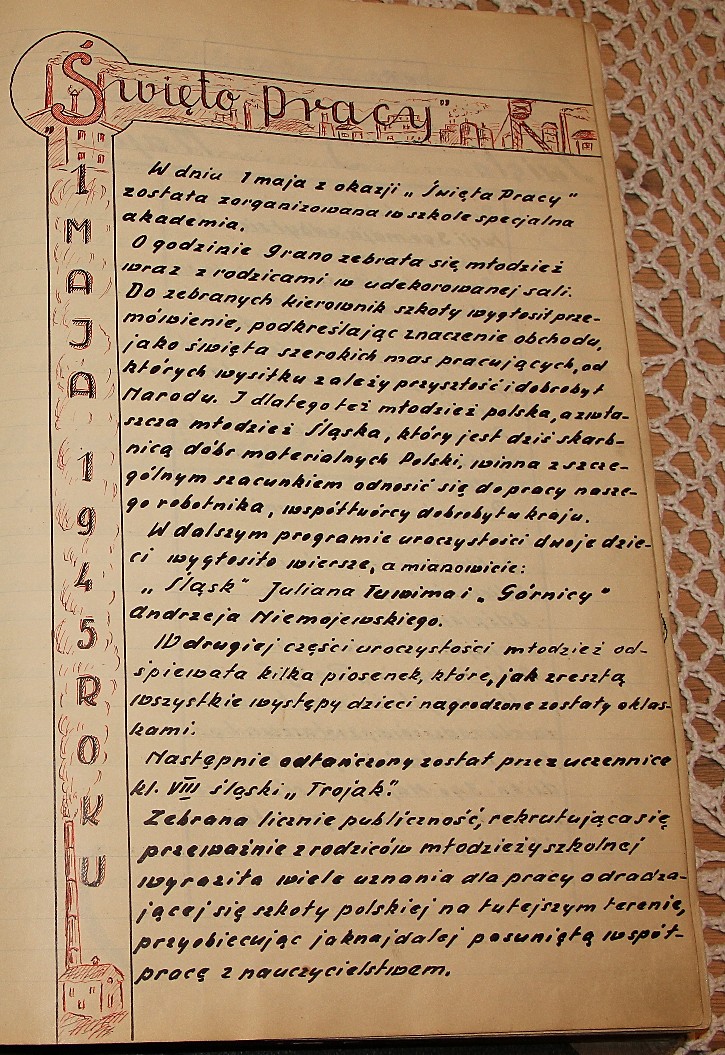 „Święto Pracy"
1 MAJA 1945 ROKU
W dniu 1 maja z okazji „Święta Pracy"
została zorganizowana w szkole specjalna
akademia.
O godzinie 9 rano zebrała się młodzież
wraz z rodzicami w udekorowanej sali.
Do zebranych kierownik szkoły wygłosił prze-
mówienie, podkreślając znaczenie obchodu,
jako święta szerokich mas pracujących, od
których wysiłku zależy przyszłość i dobrobyt
Narodu. I dlatego też młodzież polska, a zwła-
szcza młodzież Śląska, który jest dziś skarb-
nicą dóbr materialnych Polski, winna z szcze-
gólnym szacunkiem odnosić się do pracy nasze-
go robotnika, współtwórcy dobrobytu kraju.
W dalszym programie uroczystości dwoje dzie-
ci wygłosiło wiersze, a mianowicie:
„Śląsk" Juliana Tuwima i „Górnicy"
Andrzeja Niemojewskiego.
W drugiej części uroczystości młodzież od-
śpiewała kilka piosenek, które, jak zresztą
wszystkie występy dzieci nagrodzone zostały oklas-
kami.
Następnie odtańczony został przez uczennice
kl. VIII śląski „Trojak".
Zebrana licznie publiczność, rekrutująca się
przeważnie z rodziców młodzieży szkolnej
wyraziła wiele uznania dla pracy odradza-
jącej się szkoły polskiej na tutejszym terenie,
przyobiecując jaknajdalej posuniętą współ-
pracę z nauczycielstwem.